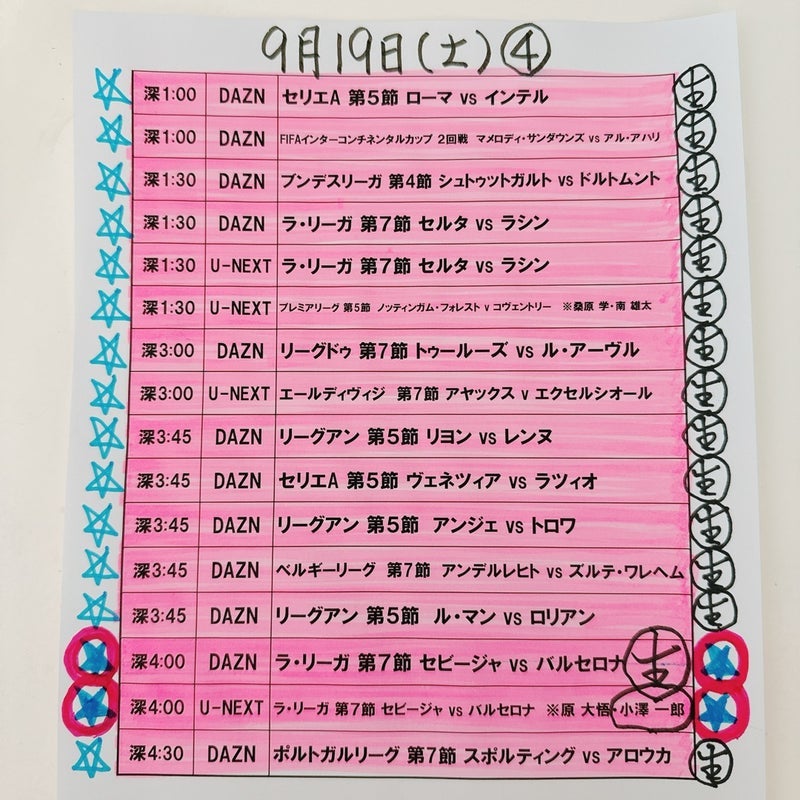 9月19日(土)④
深1:00 DAZN セリエA 第5節 ローマ vs インテル 生
深1:00 DAZN FIFAインターコンチネンタルカップ 2回戦 マメロディ・サンダウンズ vs アル・アハリ 生
深1:30 DAZN ブンデスリーガ 第4節 シュトゥットガルト vs ドルトムント 生
深1:30 DAZN ラ・リーガ 第7節 セルタ vs ラシン 生
深1:30 U-NEXT ラ・リーガ 第7節 セルタ vs ラシン 生
深1:30 U-NEXT プレミアリーグ 第5節 ノッティンガム・フォレスト v コヴェントリー ※桑原 学・南 雄太 生
深3:00 DAZN リーグドゥ 第7節 トゥールーズ vs ル・アーヴル 生
深3:00 U-NEXT エールディヴィジ 第7節 アヤックス v エクセルシオール 生
深3:45 DAZN リーグアン 第5節 リヨン vs レンヌ 生
深3:45 DAZN セリエA 第5節 ヴェネツィア vs ラツィオ 生
深3:45 DAZN リーグアン 第5節 アンジェ vs トロワ 生
深3:45 DAZN ベルギーリーグ 第7節 アンデルレヒト vs ズルテ・ワレヘム 生
深3:45 DAZN リーグアン 第5節 ル・マン vs ロリアン 生
深4:00 DAZN ラ・リーガ 第7節 セビージャ vs バルセロナ 生
深4:00 U-NEXT ラ・リーガ 第7節 セビージャ vs バルセロナ ※原 大悟・小澤 一郎
深4:30 DAZN ポルトガルリーグ 第7節 スポルティング vs アロウカ 生